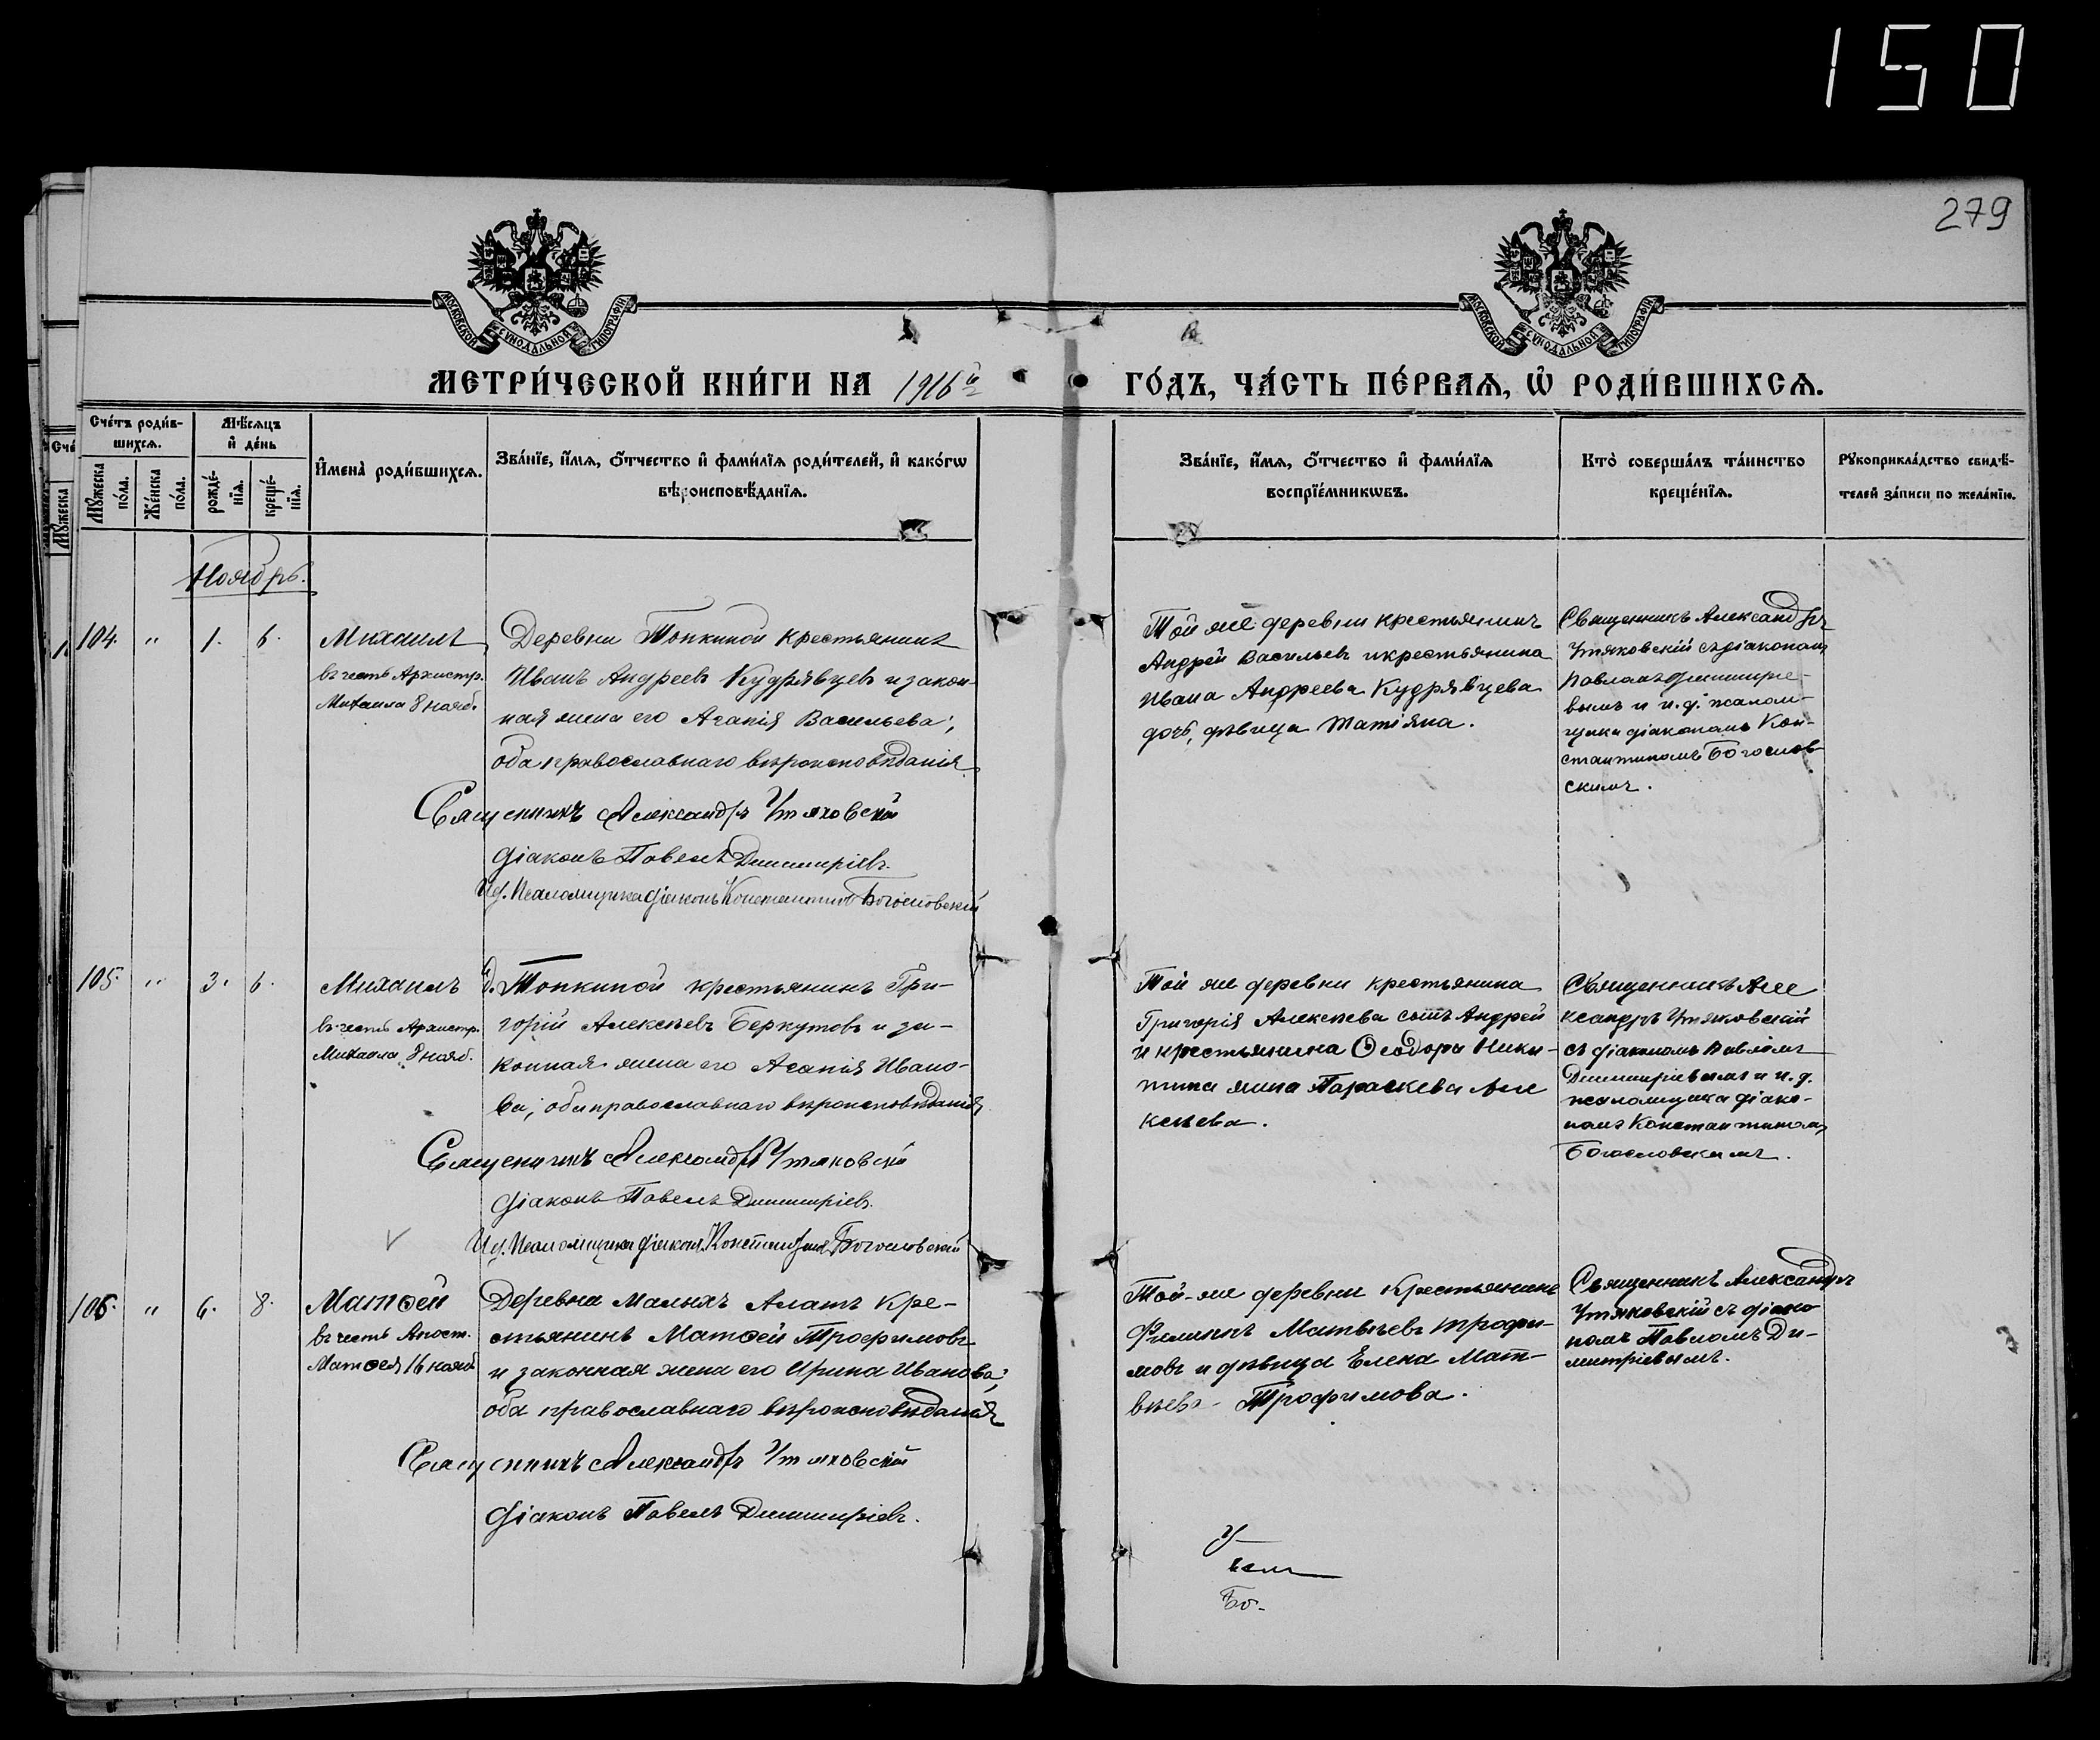 150
279
МОСКОВСКОЙ СѴНОДАЛЬНОЙ ТИПОГРАФІИ
МОСКОВСКОЙ СѴНОДАЛЬНОЙ ТИПОГРАФІИ
МЕТРИ́ЧЕСКОЙ КНИ́ГИ НА 1916й
ГО́ДЪ, ЧА́СТЬ ПЕ́РВАѦ, Ѡ҆ РОДИ́ВШИХСѦ.
Сче́тъ роди́в-
шихсѧ.
Мꙋ́жеска по́ла.
Же́нска по́ла.
Мѣ́сѧцъ
и҆ де́нь
рожде́-
нїѧ.
креще́-
нїѧ.
И҆мена̀ роди́вшихсѧ.
Зва́нїе, и҆́мѧ, ѻ҆́тчество и҆ фами́лїѧ роди́телей, и҆ како́гѡ
вѣроисповѣ́данїѧ.
Зва́нїе, и҆́мѧ, ѻ҆́тчество и҆ фами́лїѧ
воспрїе́мникѡвъ.
Кто̀ соверша́лъ та́инство
креще́нїѧ.
Рꙋкоприкла́дство свидѣ́-
телей за́писи по жела́нїю.
Ноябрь.
104. " 1. 6.
Михаилъ
въ честь Архистр.
Михаила 8 нояб.
Деревни Топкиной крестьянинъ
Иванъ Андреевъ Кудрявцевъ и закон-
ная жена его Агапія Васильева;
оба православнаго вѣроисповѣданія
Священникъ Александръ Утяковскій
Діаконъ Павелъ Димитріевъ.
И.д. Псаломщика діаконъ Константинъ Богословскій
Той же деревни крестьянинъ
Андрей Васильевъ и крестьянина
Ивана Андреева Кудрявцева
дочь, дѣвица Татіяна.
Священникъ Александръ
Утяковскій съ діакономъ
Павломъ Димитріе-
вымъ и и.д. псалом-
щика діакономъ Кон-
стантиномъ Богослов-
скимъ.
105. " 3. 6.
Михаилъ
въ честь Архистр.
Михаила 8 нояб.
д. Топкиной крестьянинъ Гри-
горій Алексѣевъ Беркутовъ и за-
конная жена его Агапія Ивано-
ва; оба православнаго вѣроисповѣданія
Священникъ Александръ Утяковскій
Діаконъ Павелъ Димитріевъ.
И.д. Псаломщика діаконъ Константинъ Богословскій
Той же деревни крестьянина
Григорія Алексѣева сынъ Андрей
и крестьянина Ѳеодора Ники-
тина жена Параскева Але
ксѣева.
Священникъ Але
ксандръ Утяковскій
съ діакономъ Павломъ
Димитріевымъ и и.д.
псаломщика діако-
номъ Константиномъ
Богословскимъ.
106. " 6. 8.
Матѳей
въ честь Апост.
Матѳея 16 нояб.
Деревни Малыхъ Алатъ кре-
стьянинъ Матѳей Трофимовъ
и законная жена его Ирина Иванова;
оба православнаго вѣроисповѣданія
Священникъ Александръ Утяковскій
Діаконъ Павелъ Димитріевъ.
Той-же деревни крестьянинъ
Филиппъ Матвѣевъ Трофи-
мовъ и дѣвица Елена Мат-
вѣева Трофимова.
Священникъ Александръ
Утяковскій съ діако-
номъ Павломъ Ди-
митріевымъ.
Бо-